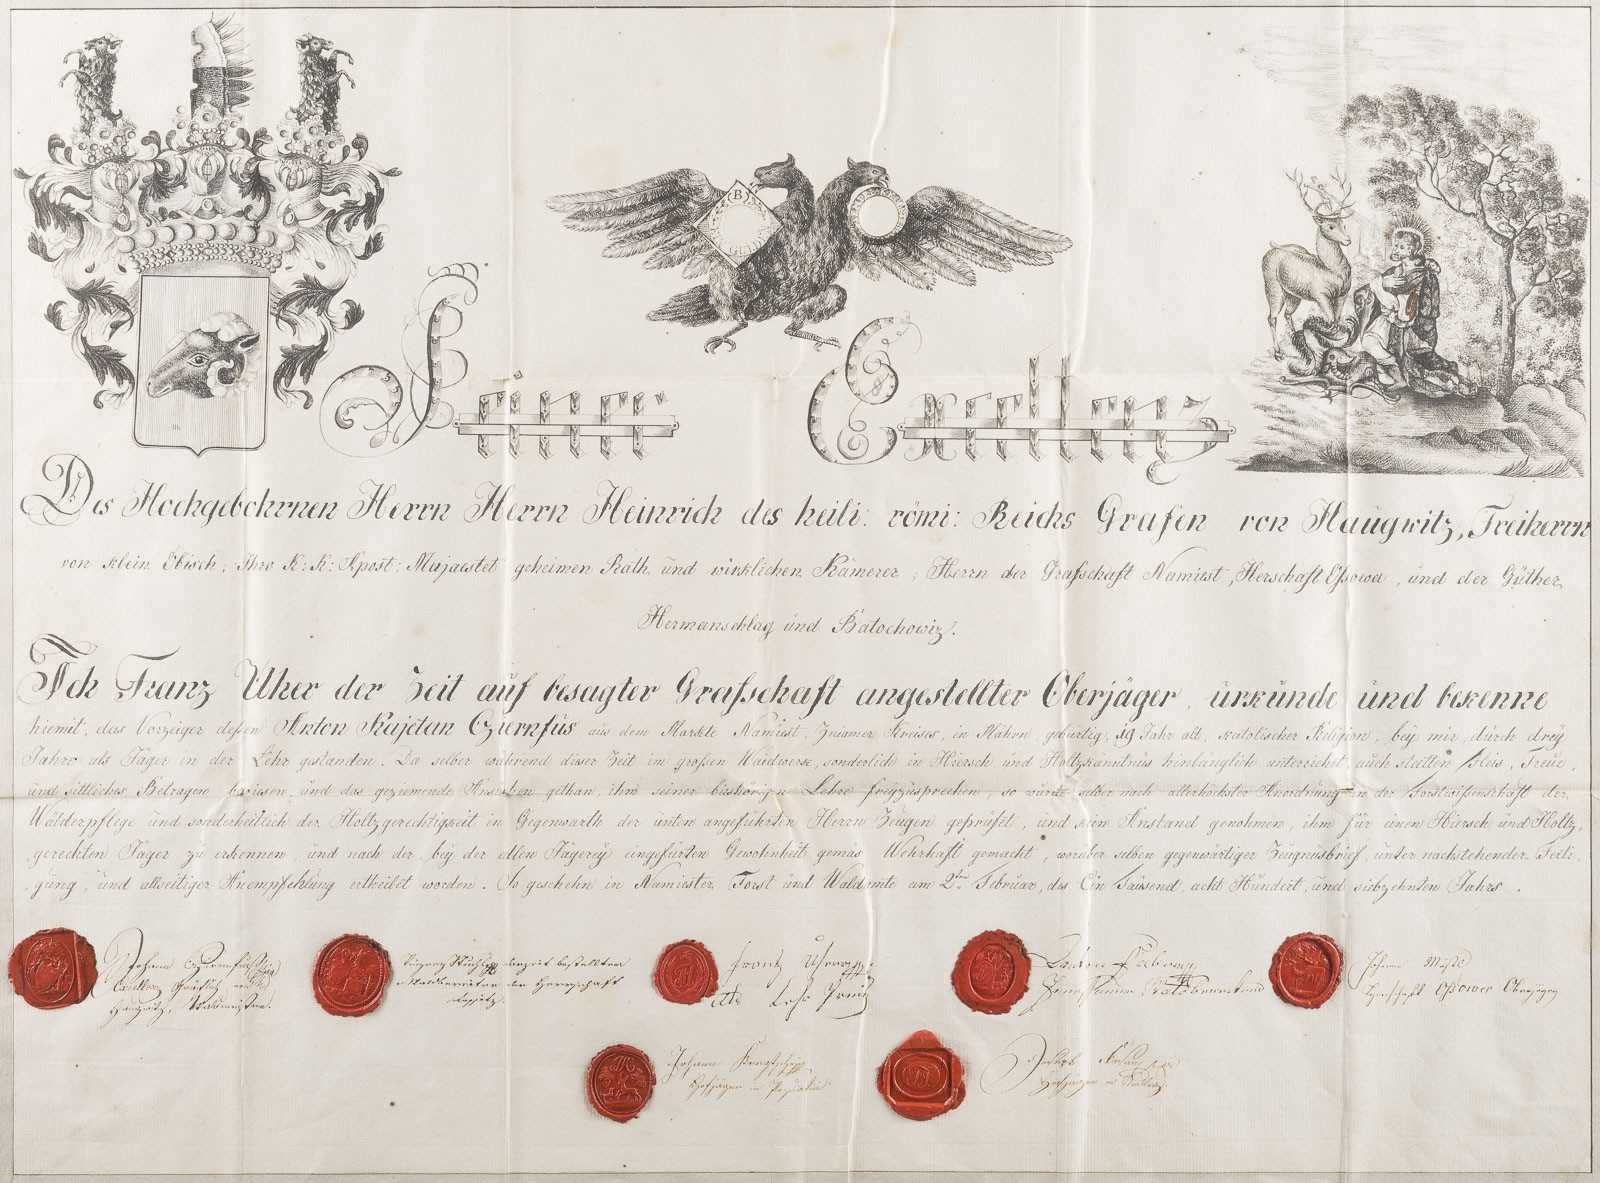 B
Seiner Excellenz
Des Hochgebohrnen Herrn Herrn Heinrich des heili: römi: Reichs Grafen von Haugwitz, Freiherrn
von Klein Obisch; Ihro K: K: Apost: Majaestet geheimen Rath, und wirklichen Kämerer, Herrn der Grafschaft Namiest, Herschaft Oßowa, und der Güther
Hermanschlag und Ratochowiz.
Ich Franz Uher der Zeit auf besagter Grafschaft angestellter Oberjäger, urkunde und bekenne
hiemit, das Vorzeiger deßen Anton Kajetan Czernfus aus dem Markte Namiest, Znaimer Kreises, in Mährn, gebürtig, 19 Jahr alt, katolischer Religion, bey mir, durch drey
Jahre als Jäger in der Lehr gestanden. Da selber während diser Zeit im großen Waidwerk, sonderlich in Hiersch und Holtzkanntnüs hinlänglich unterrichet, auch steitten Fleis, Treüe,
und sittliches Betragen bewiesen, und das geziemende Ansuchen gethan, ihm seiner bishörigen Lehre freyzusprechen, so würde selber nach allerhöchster Anordnung in der Forstwißenschaft der
Wälderpflege und sonderheitlich der Holtzgerechtigkeit in Gegenwarth der unten angeführten Herrn Zeugen geprüfet, und kein Anstand genohmen, ihm für einen Hiersch und Holtz,
gerechten Jäger zu erkennen, und nach der bey der edlen Jägerey eingefürten Gewohnheit gemäs Wehrhaft gemacht, worüber selben gegenwärtiger Zeugnüsbrief, unter nachstehender Ferti,
gung, und allseitiger Anempfehlung ertheilet worden. So geschehn in Namiester Forst und Waldamte am 2ten Februar, des Ein Tausend, acht Hundert, und siebzehnten Jahrs.
Johann
Haugwitz, Waldmeister.
derzeit bestellter
der Herrschaft
Franz Uher
Als Lehr Prinz
Anton
Johann
Herrschaft Oßower Oberjäger
Johann
Hofjäger in
Hofjäger in